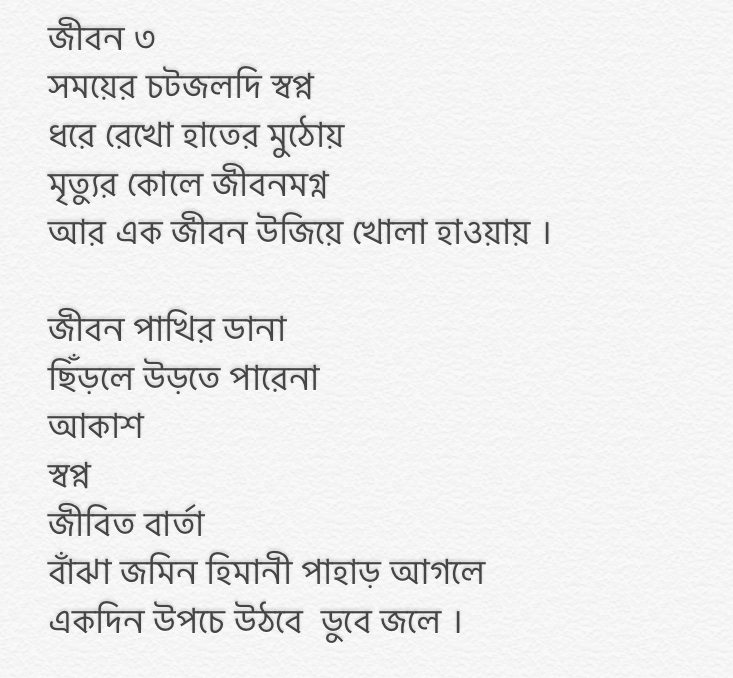 জীবন ৩
সময়ের চটজলদি স্বপ্ন
ধরে রেখো হাতের মুঠোয়
মৃত্যুর কোলে জীবনমগ্ন
আর এক জীবন উজিয়ে খোলা হাওয়ায় ।
জীবন পাখির ডানা
ছিঁড়লে উড়তে পারেনা
আকাশ
স্বপ্ন
জীবিত বার্তা
বাঁঝা জমিন হিমানী পাহাড় আগলে
একদিন উপচে উঠবে  ডুবে জলে ।